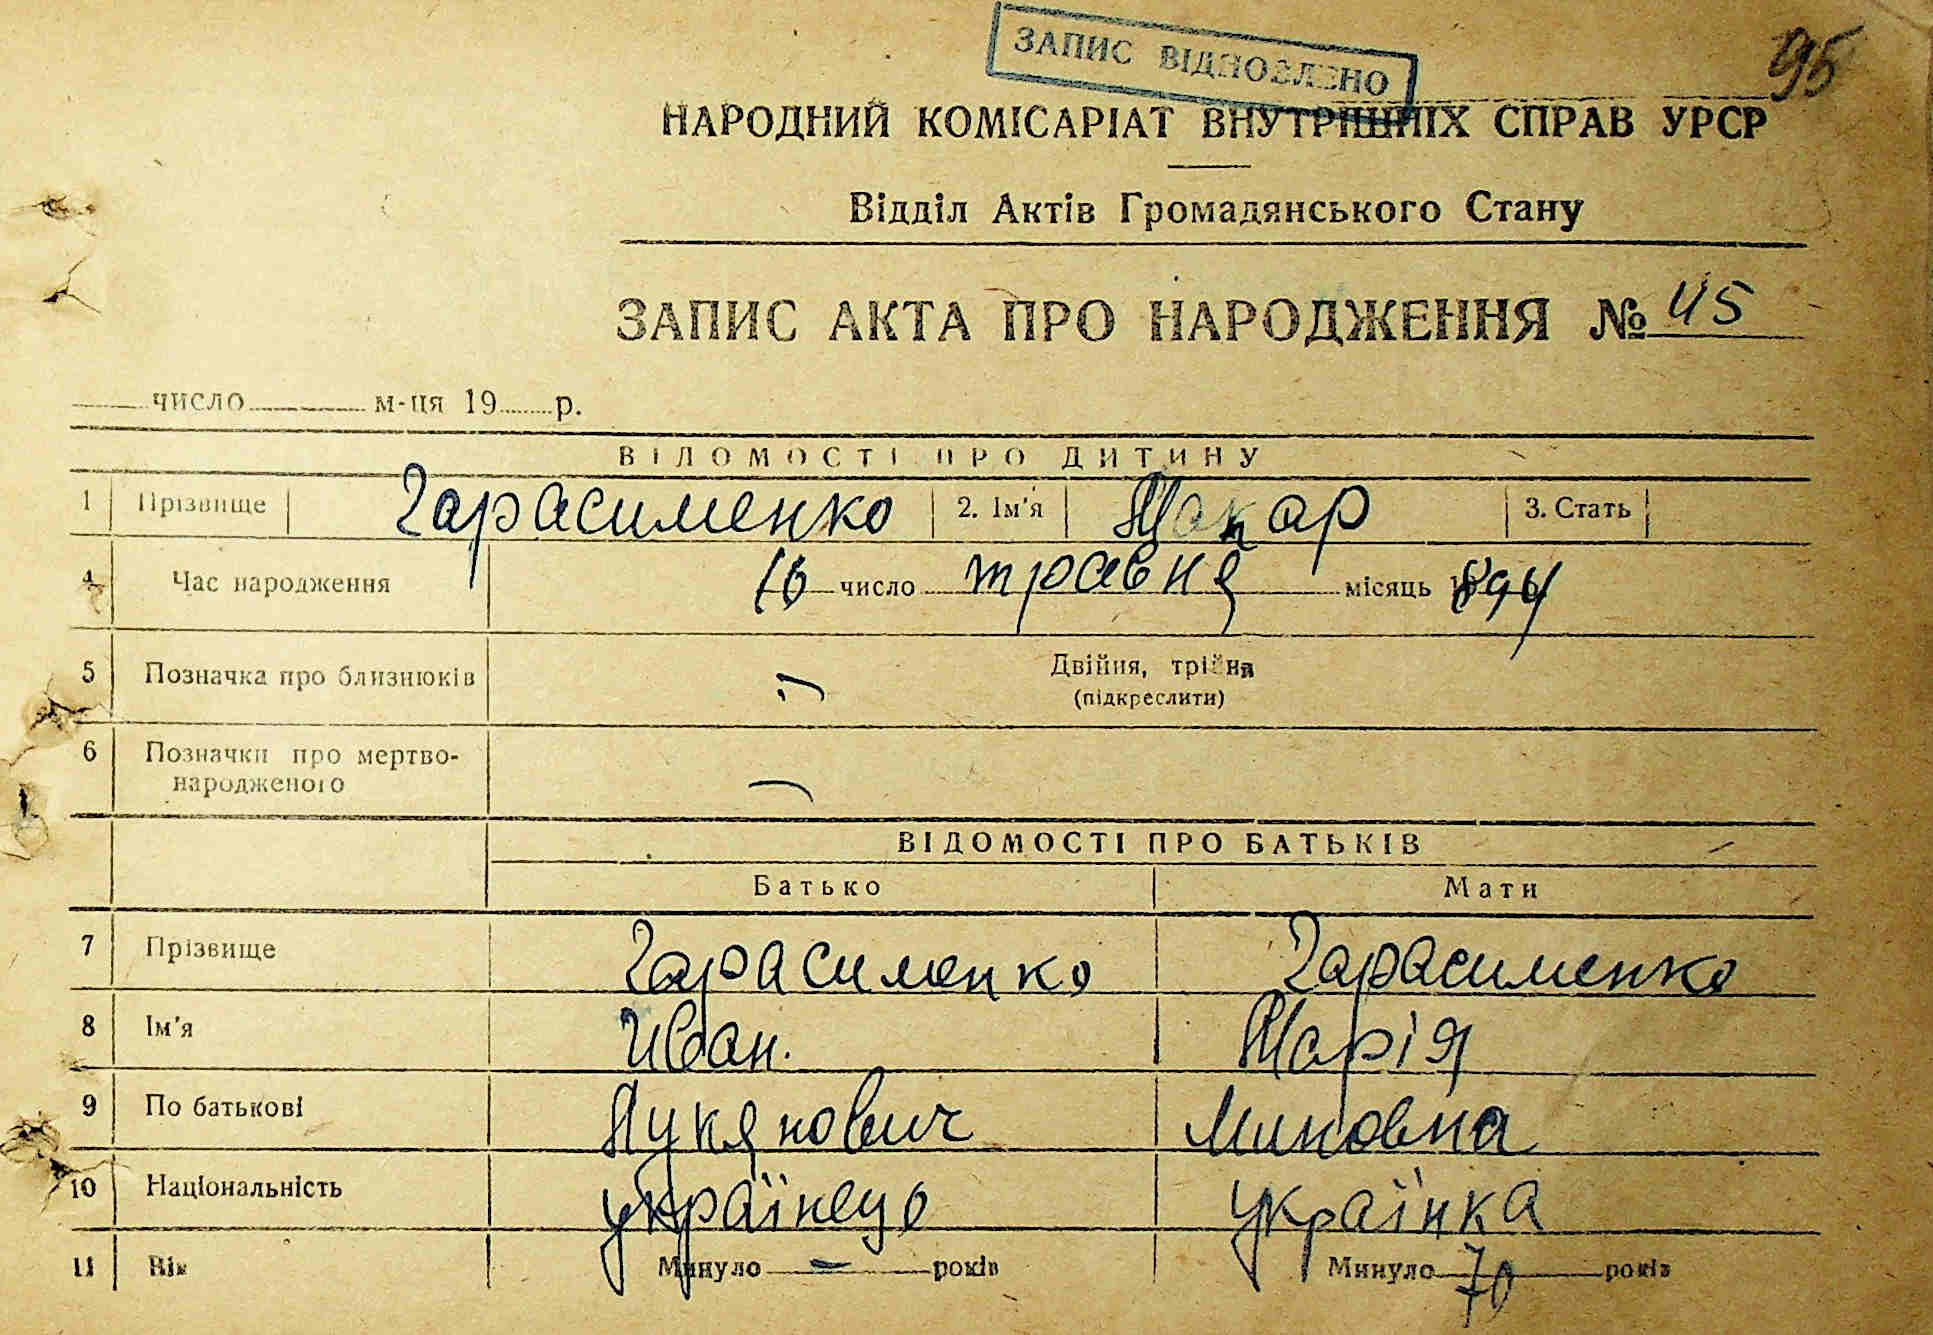 ЗАПИС ВІДНОВЛЕНО
95
НАРОДНИЙ КОМІСАРІАТ ВНУТРІШНІХ СПРАВ УРСР
Відділ Актів Громадянського Стану
ЗАПИС АКТА ПРО НАРОДЖЕННЯ № 45
число м-ця 19 р.
ВІДОМОСТІ ПРО ДИТИНУ
1 Прізвище Гарасименко 2. Ім'я Макар 3. Стать
4 Час народження 16 число травня місяць 1894
5 Позначка про близнюків Двійня, трійня
(підкреслити)
6 Позначки про мертво-
народженого
ВІДОМОСТІ ПРО БАТЬКІВ
Батько Мати
7 Прізвище Гарасименко Гарасименко
8 Ім'я Иван. Марія
9 По батькові Лукянович Миновна
10 Національність українець українка
11 Вік Минуло — років Минуло 70 років